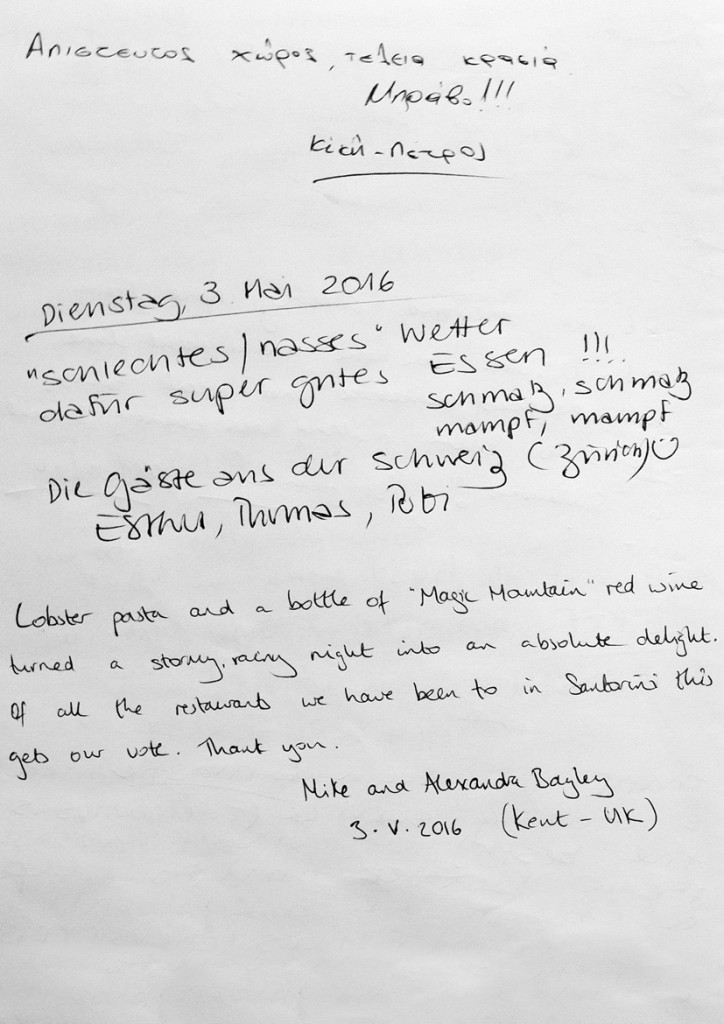 Απιστευτος χώρος, τελεια κρασιά
Μπράβο!!!
Κική - Πετρος
Dienstag, 3. Mai 2016
"schlechtes / nasses" Wetter
dafür super gutes Essen !!!
schmatz, schmatz
mampf, mampf
Die Gäste aus der Schweiz (Zürich) ☺
Esther, Thomas, Robi
Lobster pasta and a bottle of "Magic Mountain" red wine
turned a stormy, rainy night into an absolute delight.
Of all the restaurants we have been to in Santorini this
gets our vote. Thank you.
Mike and Alexandra Bagley
3. V. 2016 (Kent - UK)